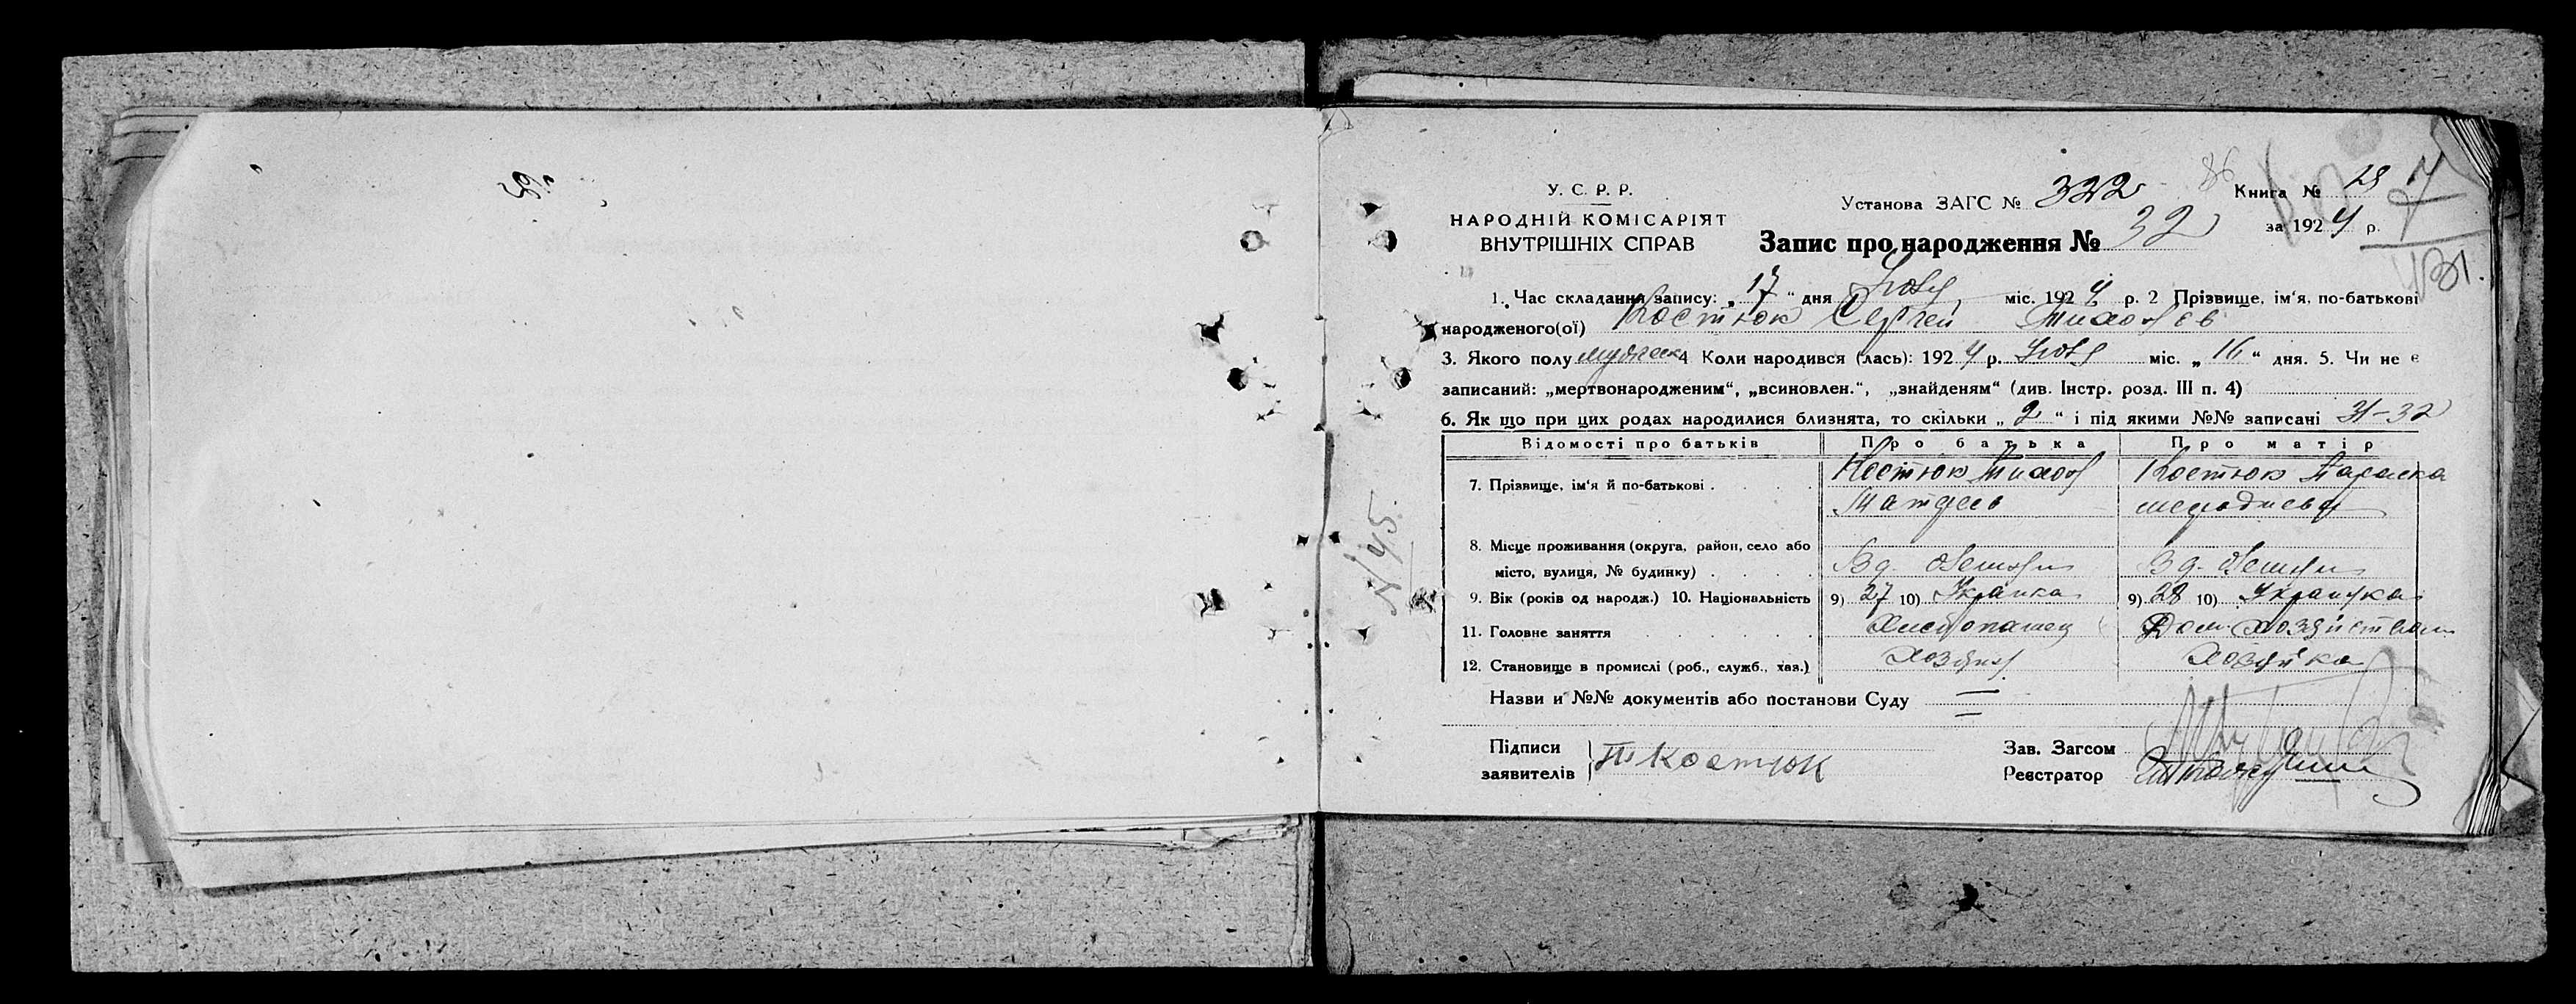 У. С. Р. Р.
НАРОДНІЙ КОМІСАРІЯТ
ВНУТРІШНІХ СПРАВ
86
Установа ЗАГС № 332
Книга № 18
за 1924 р.
Запис про народження № 32
1. Час складання запису: „17“ дня міс. 1924 р. 2 Прізвище, ім‘я, по-батькові
народженого(ої) Костюк Сергей Тихонов
3. Якого полу мужеск 4 Коли народився (лась): 1924 р. міс. „16“ дня. 5. Чи не є
записаний: „мертвонародженим“, „всиновлен.“, „знайденям“ (див. Інстр. розд. III п. 4)
6. Як що при цих родах народилися близнята, то скільки „2“ і під якими №№ записані 31-32
Відомості про батьків Про батька Про матір
7. Прізвище, ім‘я й по-батькові . Костюк Тихон Костюк Параска
8. Місце проживання (округа, район, село або
місто, вулиця, № будинку)
9. Вік (років од народж.) 10. Національність 9) 27 10) 9) 28 10)
11. Головне заняття Хлебопашец Дом. хозяйством
12. Становище в промислі (роб., служб., хаз.) Хозяин Хозяйка
Назви и №№ документів або постанови Суду =
Підписи
заявителів Т Костюк
Зав. Загсом
Реєстратор
№ 45.